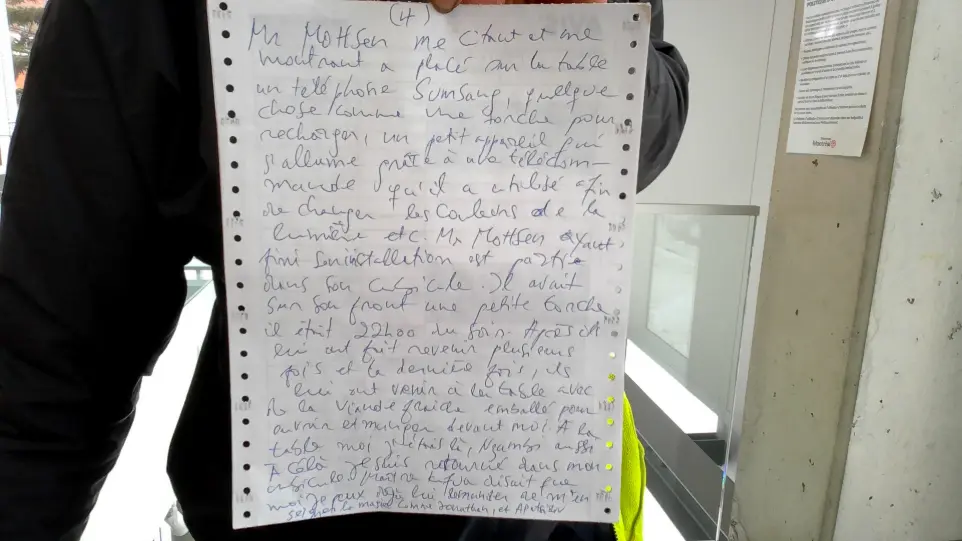 (4)
Mr Mottsen me citant et me
montrant a placé sur la table
un téléphone Sumsang, quelque
chose comme une torche pour
recharger, un petit appareil qui
s'allume grâce à une télécom-
mande qu'il a utilisé afin
de changer les couleurs de la
lumière etc. Mr Mottsen ayant
fini son installation est partie
dans son cubicule. Il avait
sur son front une petite torche
il était 22h00 du soir. Après
lui ont fait revenir plusieurs
fois et la dernière fois, ils
lui ont venir à la table avec
de la viande fraiche emballé pour
ouvrir et manger devant moi. A la
table moi j'étais là, Ngambo aussi
A célà je suis retourné dans mon
cubicule, Maître disait que
moi je eux lui demander de m'en
comme Jonathan, et
Montréal